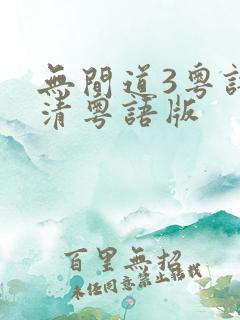 無間道3粵語
清粵語版
百里無招
未经同意禁止转载